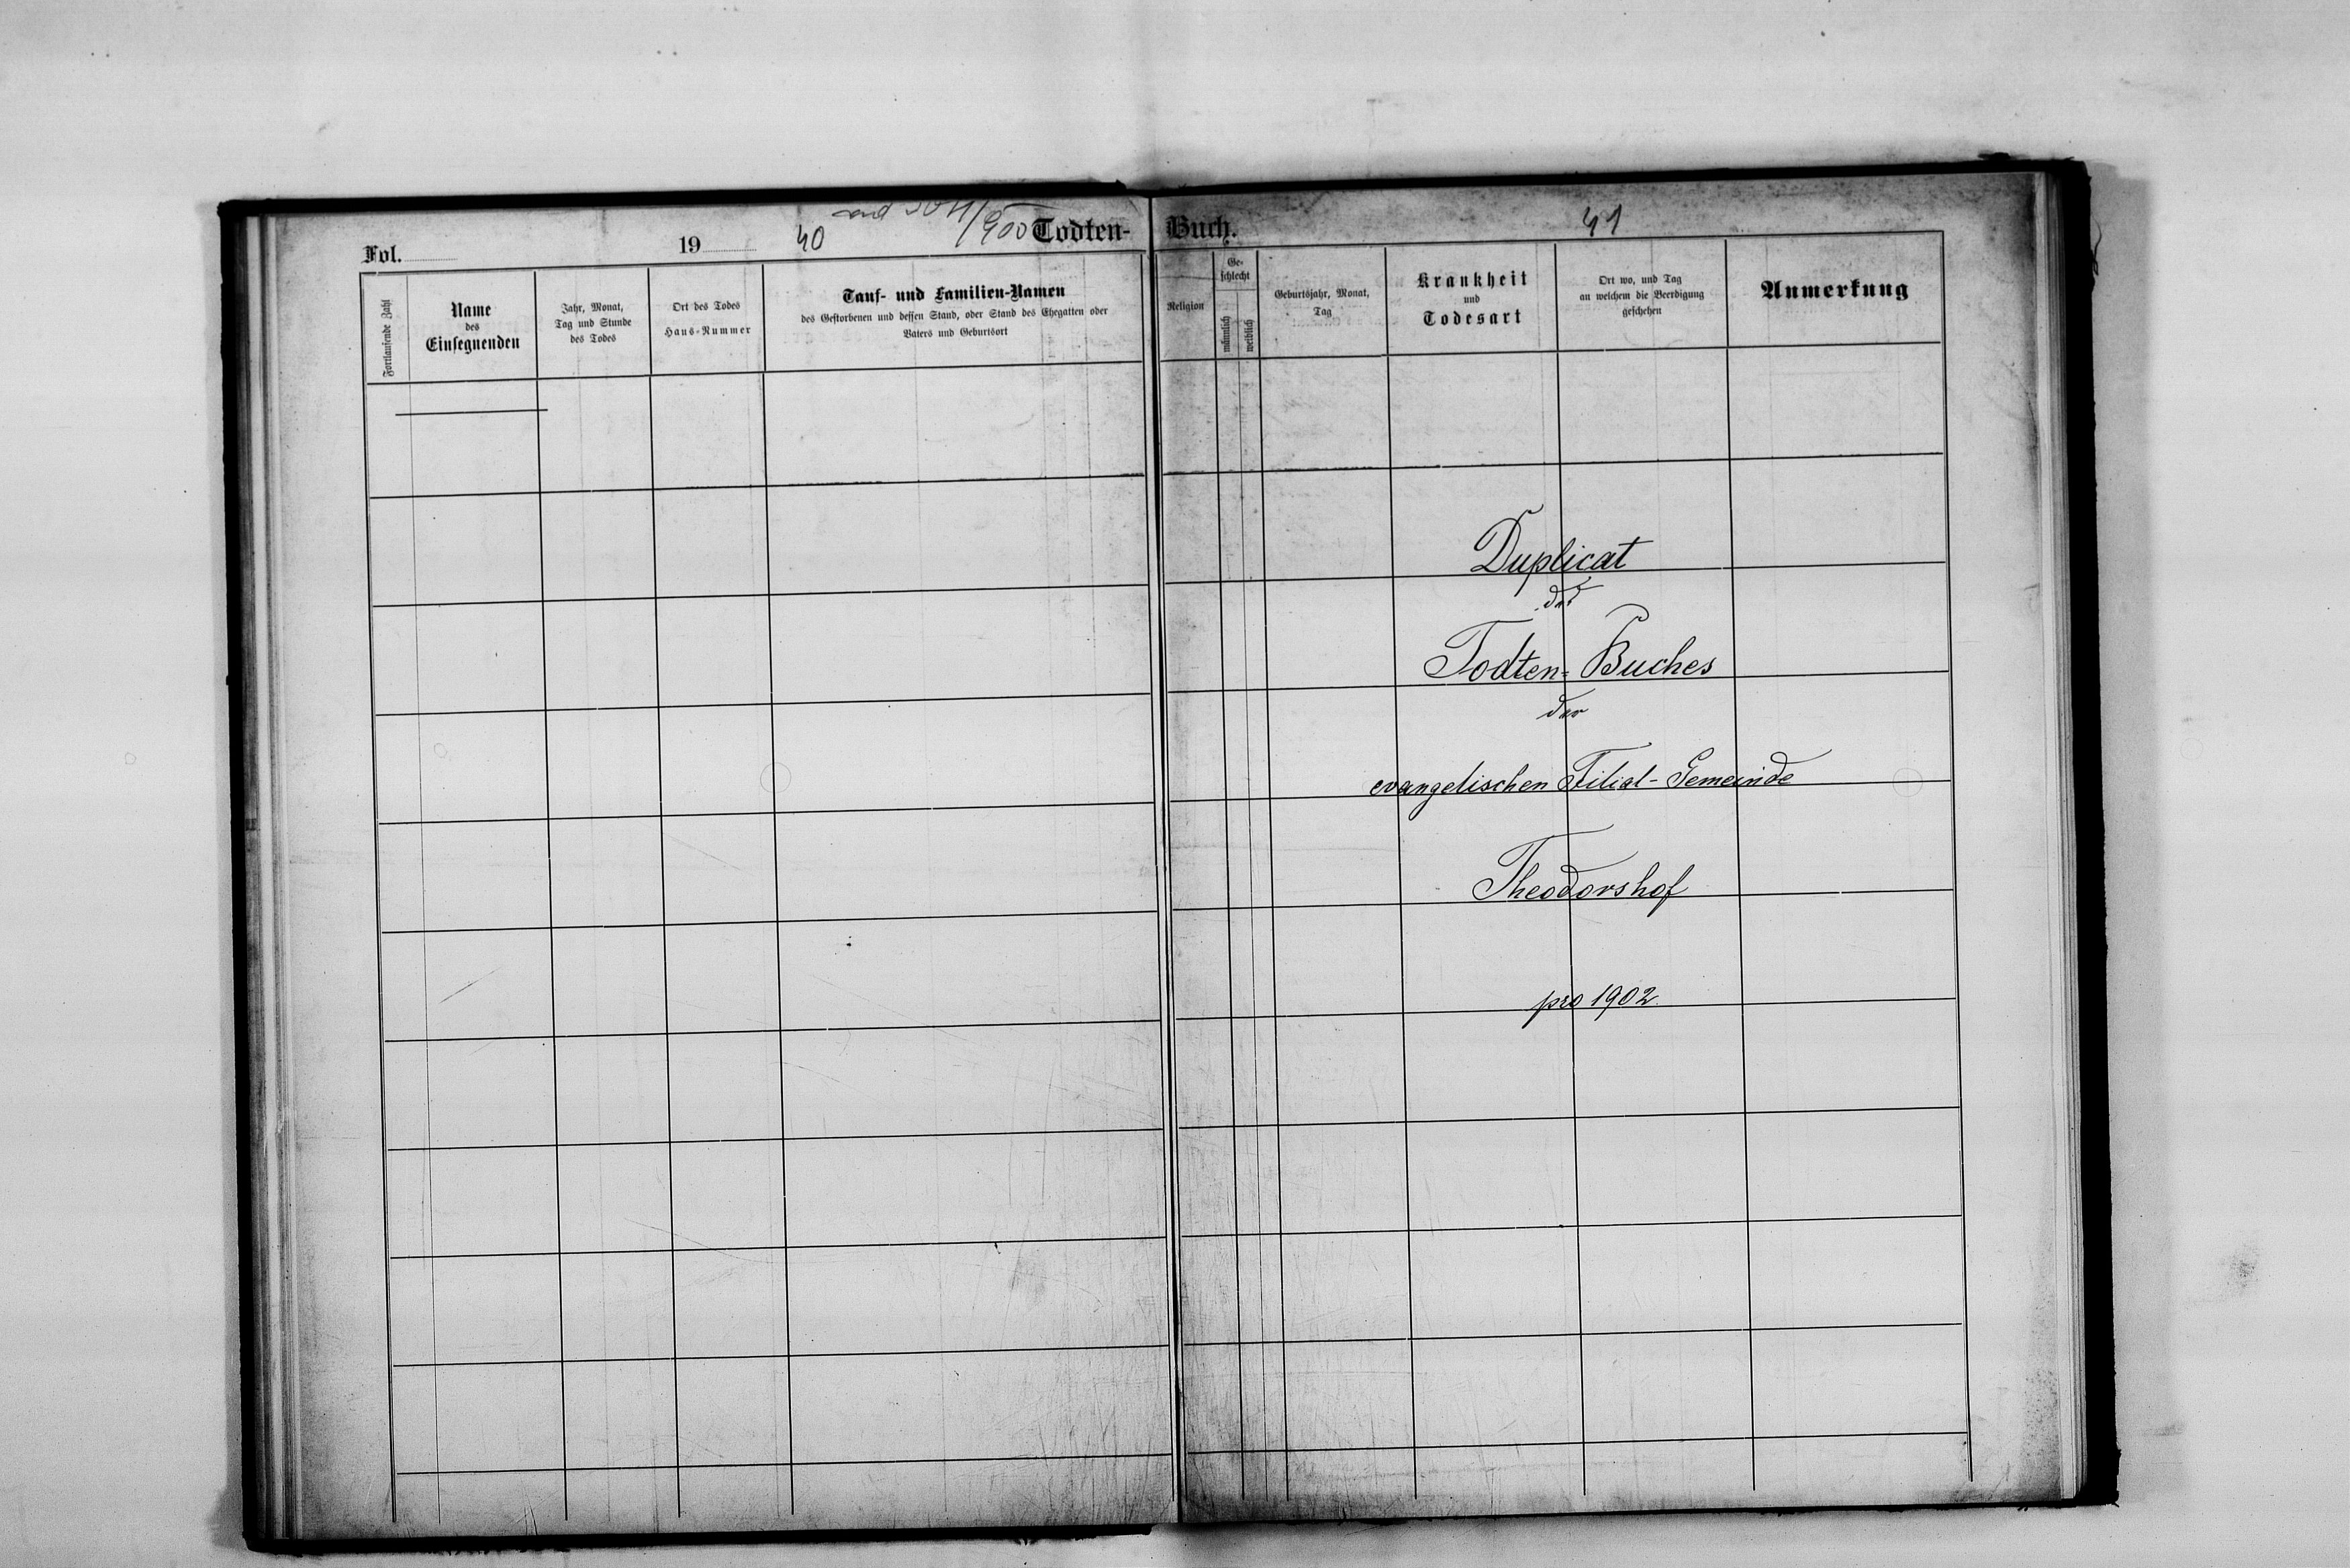 40
/900
Fol. 19 Todten-
Fortlaufende Zahl
Name
des
Einsegnenden
Jahr, Monat,
Tag und Stunde
des Todes
Ort des Todes
Haus-Nummer
Tauf- und Familien-Namen
des Gestorbenen und dessen Stand, oder Stand des Ehegatten oder
Vaters und Geburtsort
Buch.
41
Religion
Ge-
schlecht
männlich
weiblich
Geburtsjahr, Monat,
Tag
Krankheit
und
Todesart
Ort wo, und Tag
an welchem die Beerdigung
geschehen
Anmerkung
Duplicat
des
Todten-Buches
der
evangelischen Filial-Gemeinde
Theodorshof
pro 1902.